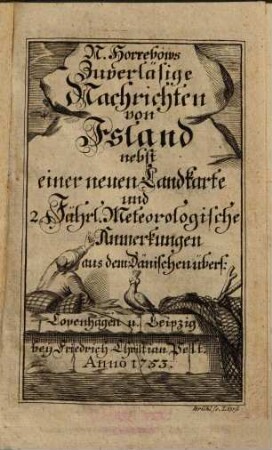 N. Horrebows
Zuverläsige
Nachrichten
von
Island
nebst
einer neuen Landkarte
und
2 Jährl. Meteorologische
Anmerkungen
aus dem Dänischen übers:
Copenhagen u. Leipzig
bey Friedrich Christian Pelt.
Anno 1753.
Brühl sc. Lips.